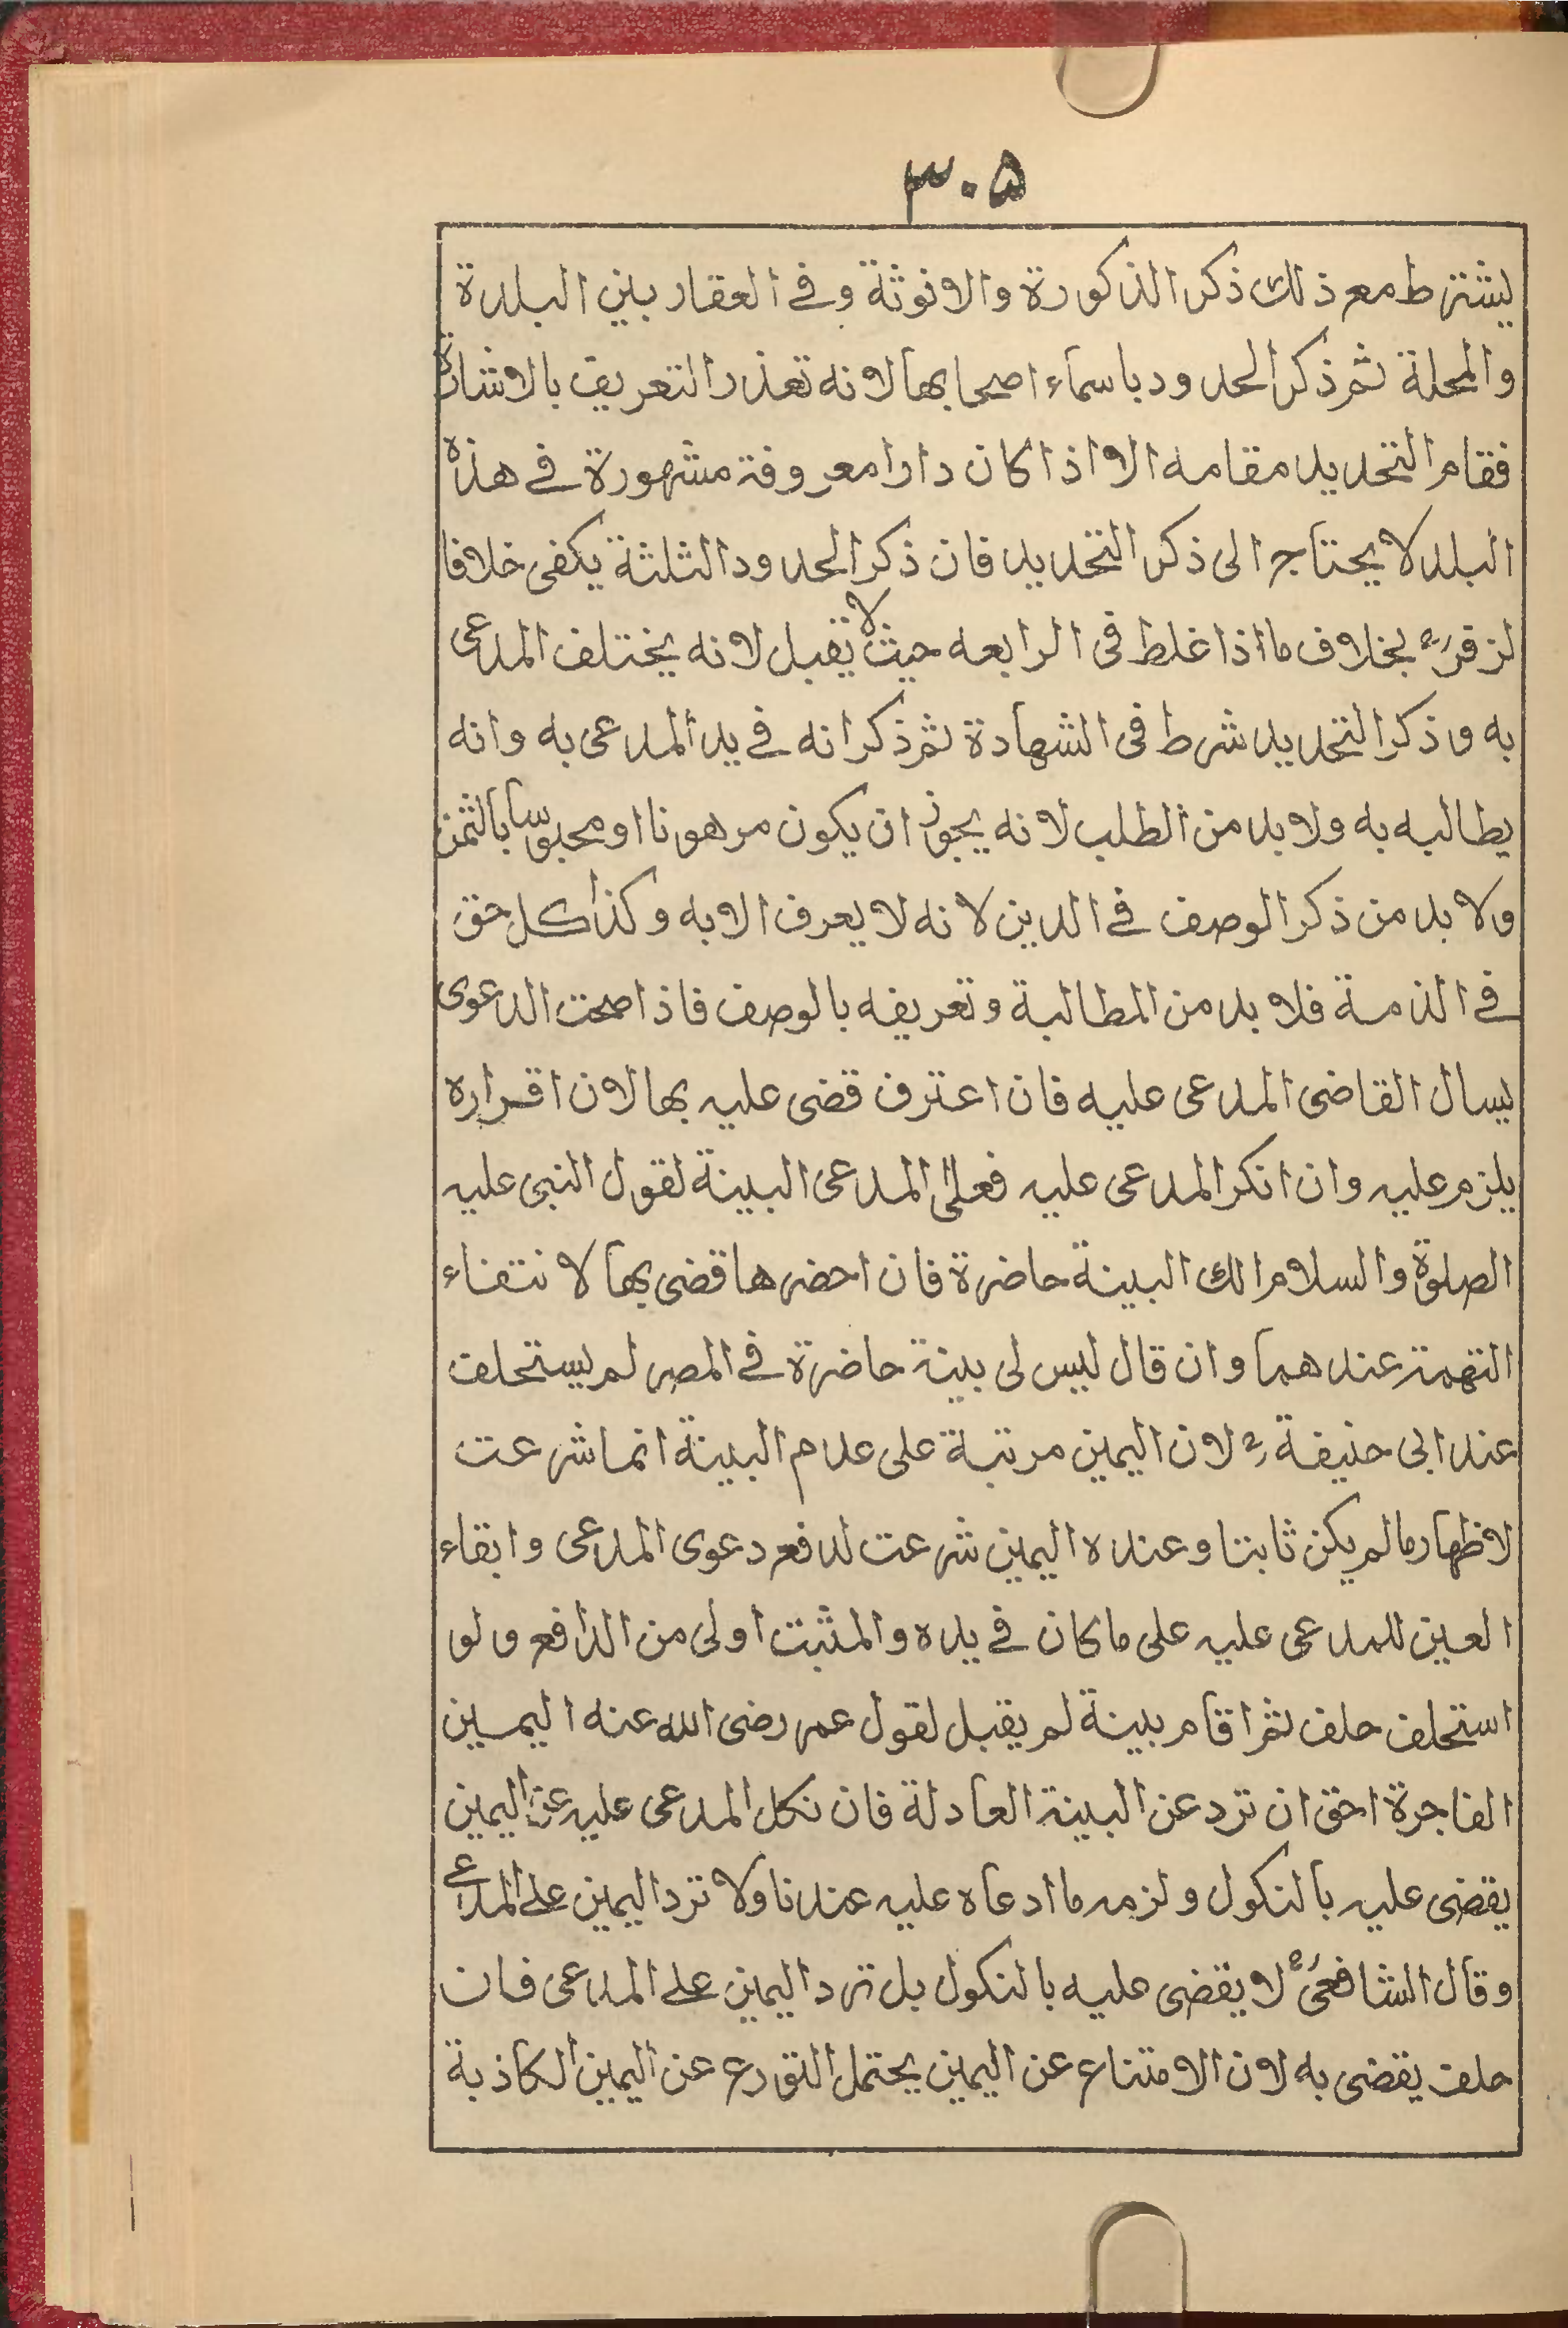 ٣٠٥
يشترط مع ذلك ذكر الذكورة والانوثة وفي العقار بين البلدة
والمحلة ثم ذكر الحدود باسماء اصحابها لانه تعذر التعريف بالاشارة
فقام التحديد مقامه الا اذا كان دارا معروفة مشهورة في هذه
البلد لا يحتاج الى ذكر التحديد فان ذكر الحدود الثلثة يكفى خلافا
لزفرؒ بخلاف ما اذا غلط فى الرابعه حيث لا تقبل لانه يختلف المدعى
به و ذكر التحديد شرط فى الشهادة ثم ذكر انه في يد المدعى به وانه
يطالبه به ولا بد من الطلب لانه يجوز ان يكون مرهونا او محبوسا بالثمن
ولا بد من ذكر الوصف في الدين لانه لا يعرف الا به وكذا كل حق
في الذمة فلا بد من المطالبة وتعريفه بالوصف فاذا صحت الدعوى
يسال القاضى المدعى عليه فان اعترف قضى عليه بها لان اقراره
يلزم عليه وان انكر المدعى عليه فعلى المدعى البينة لقول النبى عليه
الصلوة والسلام الك البينة حاضرة فان احضرها قضى بها لانتفاء
التهمة عندهما وان قال ليس لى بينة حاضرة في المصر لم يستحلف
عند ابى حنيفةؒ لان اليمين مرتبة على عدم البينة انما شرعت
لاظهار ما لم يكن ثابتا وعنده اليمين شرعت لدفع دعوى المدعى وابقاء
العين للمدعى عليه على ما كان في يده والمثبت اولى من الدافع ولو
استحلف حلف ثم اقام بينة لم يقبل لقول عمر رضى الله عنه اليمين
الفاجرة احق ان ترد عن البينة العادلة فان نكل المدعى عليه عن اليمين
يقضى عليه بالنكول ولزمه ما ادعاه عليه عندنا ولا ترد اليمين على المدعي
وقال الشافعىؒ لا يقضى عليه بالنكول بل ترد اليمين على المدعى فان
حلف يقضى به لان الامتناع عن اليمين يحتمل التورع عن اليمين الكاذبة